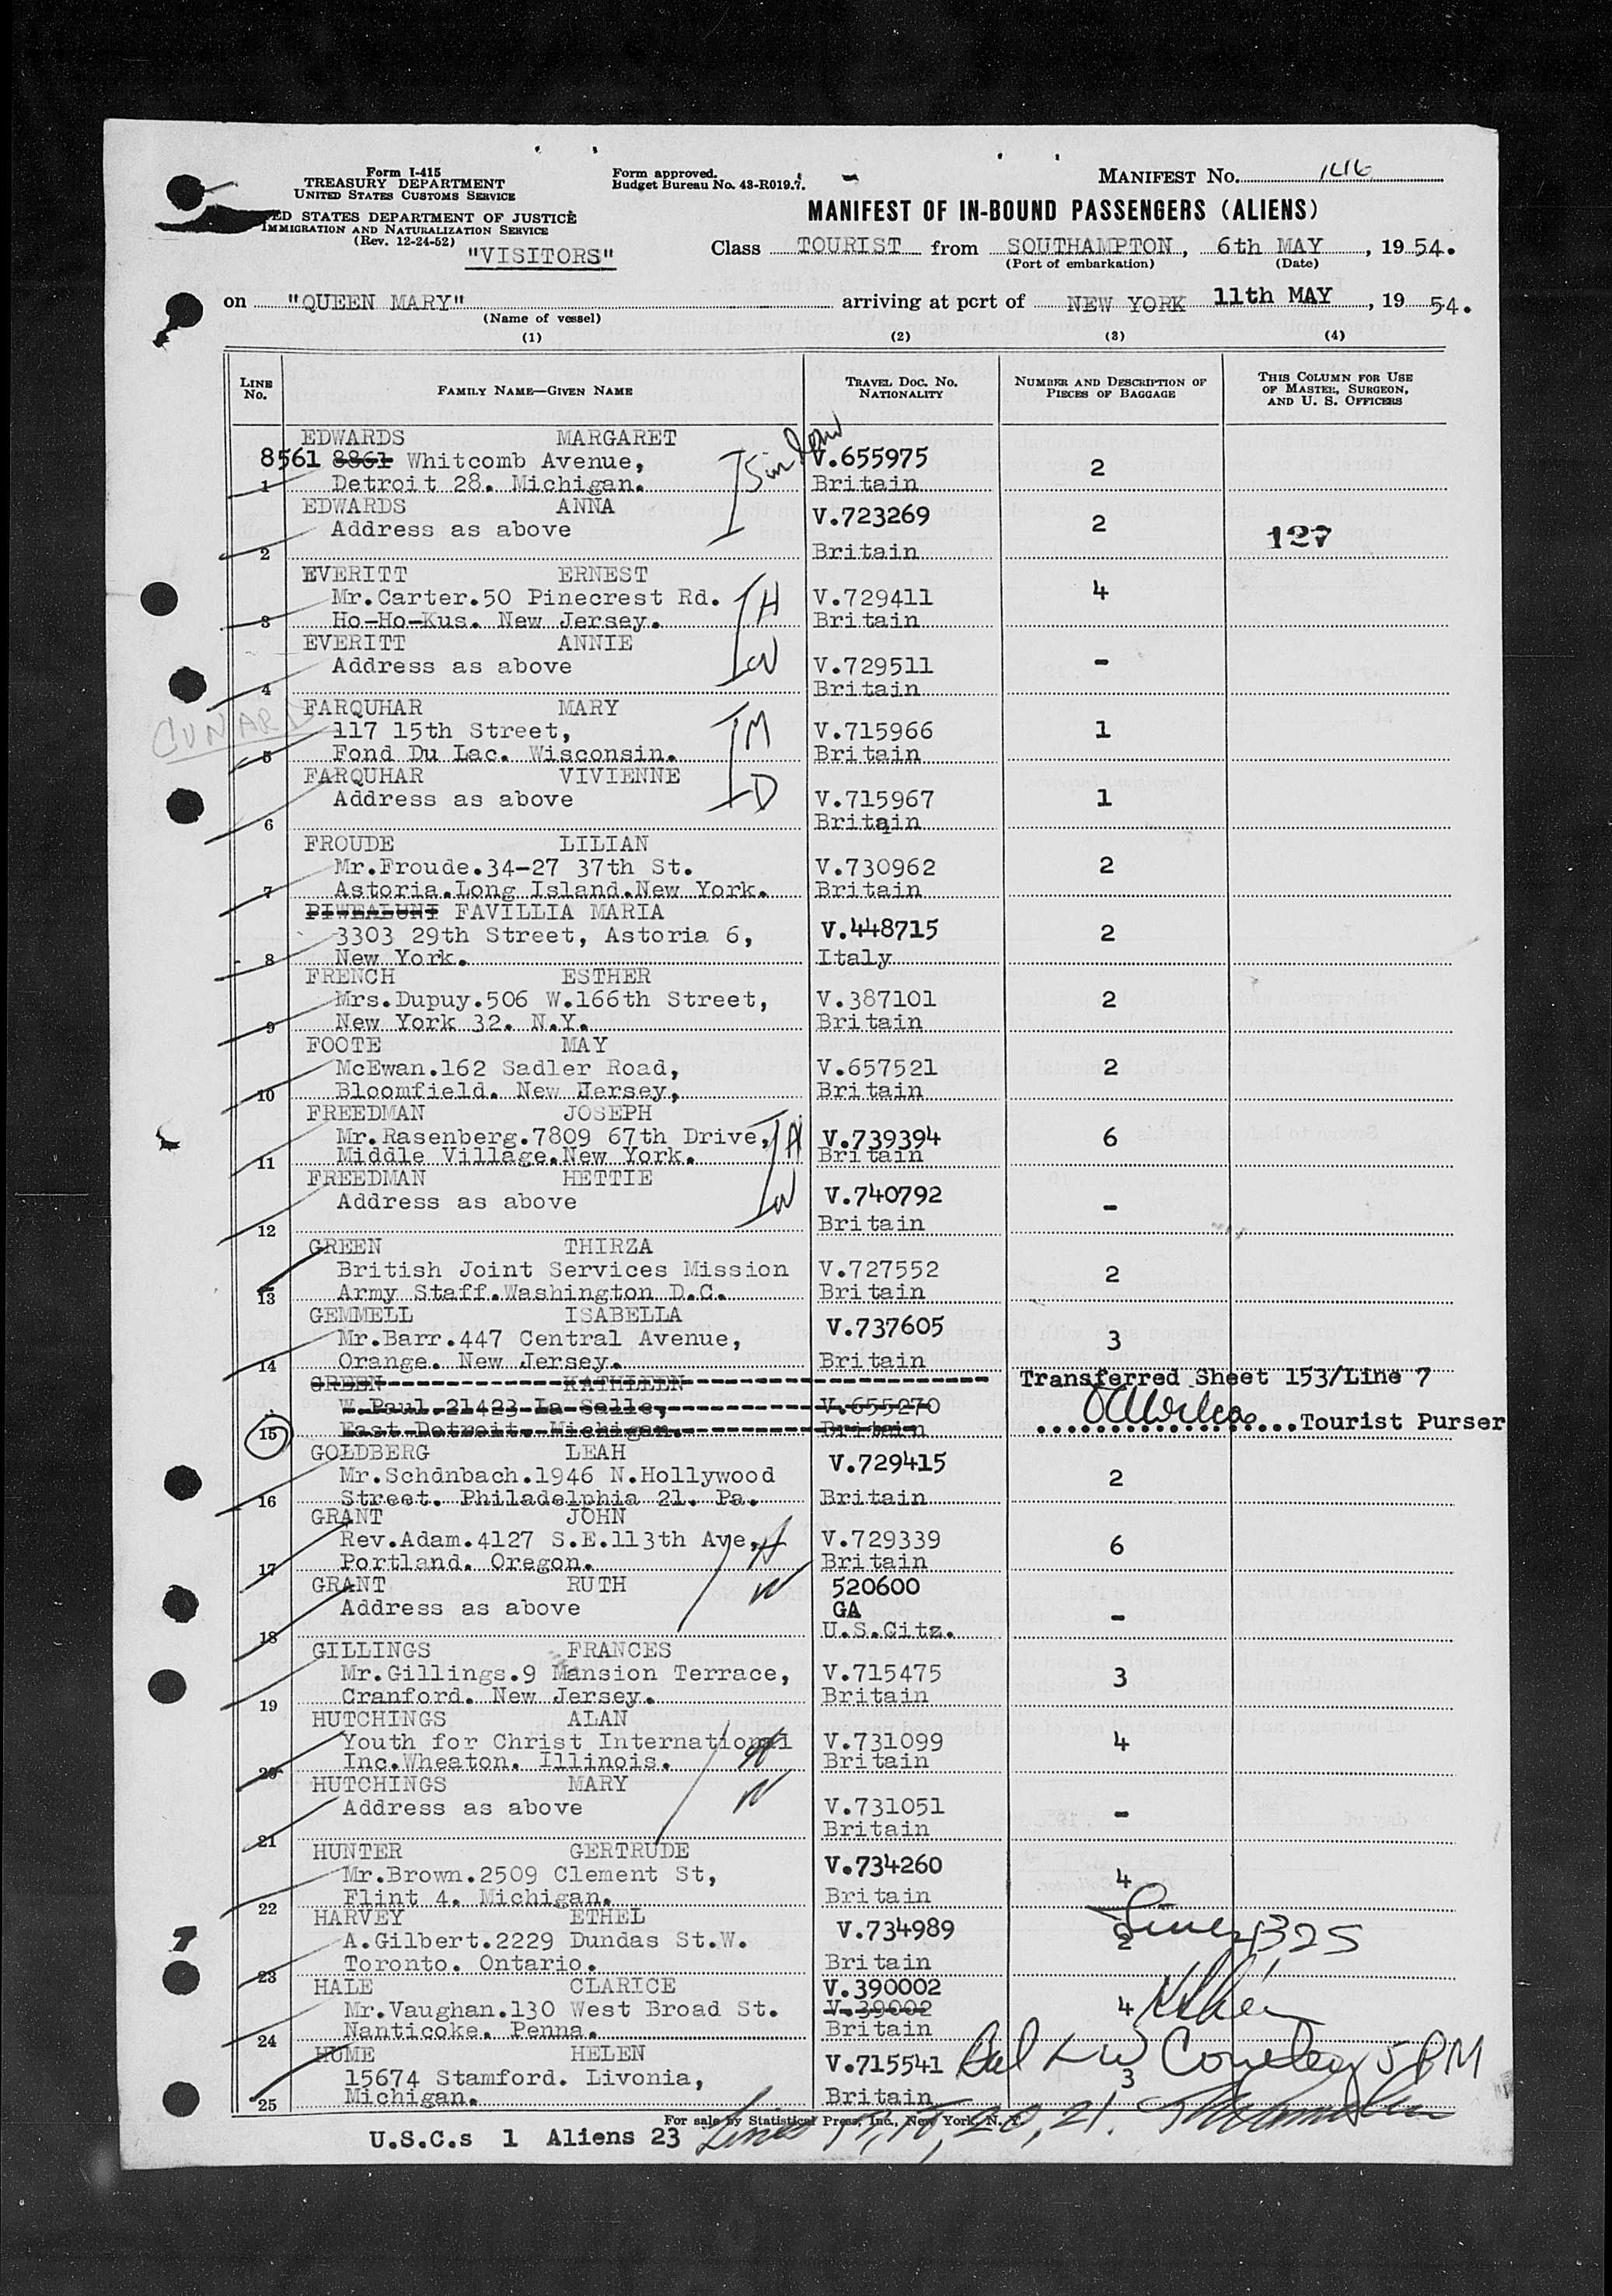 Form I-415
TREASURY DEPARTMENT
UNITED STATES CUSTOMS SERVICE
ED STATES DEPARTMENT OF JUSTICE
IMMIGRATION AND NATURALIZATION SERVICE
(Rev. 12-24-52)
"VISITORS"
Form approved.
Budget Bureau No. 43-R019.7.
MANIFEST No.
MANIFEST OF IN-BOUND PASSENGERS (ALIENS)
Class TOURIST from SOUTHAMPTON, 6th MAY, 1954.
(Port of embarkation) (Date)
on "QUEEN MARY" arriving at port of NEW YORK 11th MAY, 19 54.
(Name of vessel)
(1) (2) (3) (4)
LINE No. FAMILY NAME—GIVEN NAME TRAVEL DOC. No. NATIONALITY NUMBER AND DESCRIPTION OF PIECES OF BAGGAGE THIS COLUMN FOR USE OF MASTER, SURGEON, AND U. S. OFFICERS
EDWARDS MARGARET
8561 8861 Whitcomb Avenue, V.655975 2
1 Detroit 28. Michigan. Britain
EDWARDS ANNA
Address as above V.723269 2 127
2 Britain
EVERITT ERNEST
Mr.Carter.50 Pinecrest Rd. H V.729411 4
3 Ho-Ho-Kus. New Jersey. Britain
EVERITT ANNIE
Address as above W V.729511 -
4 Britain
CUNARD
FARQUHAR MARY
117 15th Street, M V.715966 1
5 Fond Du Lac. Wisconsin. Britain
FARQUHAR VIVIENNE
Address as above D V.715967 1
6 Britain
FROUDE LILIAN
Mr.Froude.34-27 37th St. V.730962 2
7 Astoria.Long Island.New York. Britain
PIWEALUNI FAVILLIA MARIA
3303 29th Street, Astoria 6, V.448715 2
8 New York. Italy
FRENCH ESTHER
Mrs.Dupuy.506 W.166th Street, V.387101 2
9 New York 32. N.Y. Britain
FOOTE MAY
McEwan.162 Sadler Road, V.657521 2
10 Bloomfield. New Jersey, Britain
FREEDMAN JOSEPH
Mr.Rasenberg.7809 67th Drive, H V.739394 6
11 Middle Village.New York. Britain
FREEDMAN HETTIE
Address as above W V.740792 -
12 Britain
GREEN THIRZA
British Joint Services Mission V.727552 2
13 Army Staff.Washington D.C. Britain
GEMMELL ISABELLA
Mr.Barr.447 Central Avenue, V.737605 3
14 Orange. New Jersey. Britain
GREEN KATHLEEN Transferred Sheet 153/Line 7
W.Paul.21423 La Salle, V.655270
15 East Detroit. Michigan. Britain Tourist Purser
GOLDBERG LEAH
Mr.Schönbach.1946 N.Hollywood V.729415 2
16 Street. Philadelphia 21. Pa. Britain
GRANT JOHN
Rev.Adam.4127 S.E.113th Ave, H V.729339 6
17 Portland. Oregon. Britain
GRANT RUTH 520600
Address as above W GA -
18 U.S.Citz.
GILLINGS FRANCES
Mr.Gillings.9 Mansion Terrace, V.715475 3
19 Cranford. New Jersey. Britain
HUTCHINGS ALAN
Youth for Christ International H V.731099 4
20 Inc.Wheaton. Illinois. Britain
HUTCHINGS MARY
Address as above W V.731051 -
21 Britain
HUNTER GERTRUDE
Mr.Brown.2509 Clement St, V.734260 4
22 Flint 4. Michigan. Britain
HARVEY ETHEL
A.Gilbert.2229 Dundas St.W. V.734989 2
23 Toronto. Ontario. Britain
HALE CLARICE V.390002
Mr.Vaughan.130 West Broad St. V.39002 4
24 Nanticoke. Penna. Britain
HUME HELEN
15674 Stamford. Livonia, V.715541 3
25 Michigan. Britain
For sale by Statistical Press, Inc., New York, N. Y.
U.S.C.s 1 Aliens 23 Lines